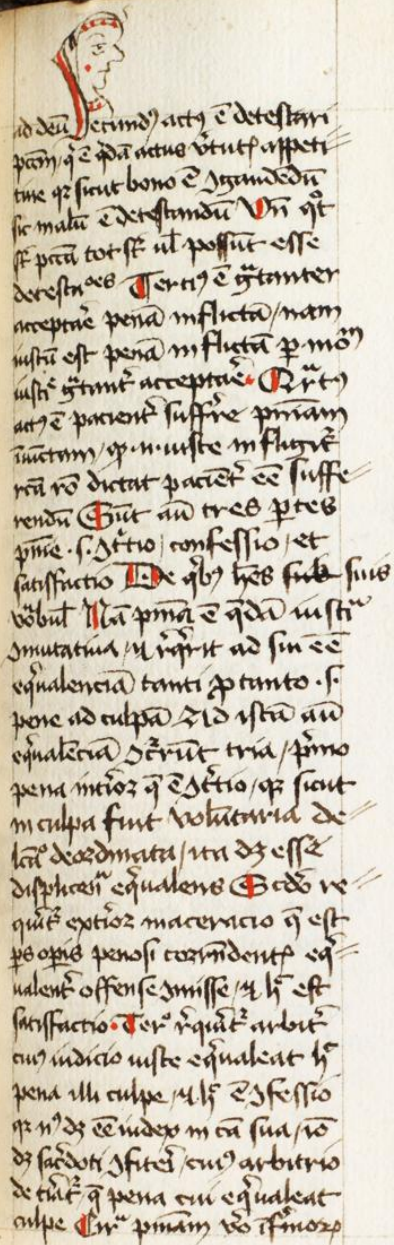 ad deū Secundꝰ actꝰ ē detestari
pccm̄, q̄ ē q̄dā actus v̓tutꝭ appeti
tiue qꝛ sicut bono ē ꝯgaudēdū
sic malū ē detestandū Vn̄ qͦt
st̄ pccā tot st̄ ul̓ possūt esse
detestac̄oēs Tercíꝰ ē gͣtanter
acceptar̄e penā inflictā, nam
iustū est penā inflictā ꝑ mo᷒ꝫ
iusti᷒ gͣtant̓ acceptar̄e Qͣrtꝰ
actꝰ ē pacient̓ suffr̄e pn̄iam
iniūctam, qꝛ .n. iuste infligit᷑
rc̄ā rō dictat pacient̓ ēē suffe
rendū Sūt aū tres ꝑtes
pn̄ie .s. ꝯt̓tio, confessio, et
satisfactio De qͥbꝰ hēs sub suis
vͦbul̓ Nā pn̄ia ē q̄dā iusti᷒ᵃ
ꝯmutatiua, ⁊ rͤqͥrit ad sui ēē
eqͥualenciā tanti ꝓ tanto .s.
pene ad culpā Ad istā aū
eqͥualēciā ꝯcͬrūt tria, pͥmo
pena int̓ioꝛ q̄ ē ꝯt̓tio, qꝛ sicut
in culpa fuit volūtaria de
lc̄ac̄o deordinata, ita dꝫ esse
displicen᷒ᵃ eqͥualens Scd̄o re
quirit᷑ ext̓ioꝛ maceracio q̄ est
ꝑs oꝑis penosi corrn̄dentꝭ eqͥ
ualent̓ offense ꝯmisse, ⁊ hͤ est
satisfactio Terͦ rͤquirit᷑ arbit̓
cuiꝰ iudicio iuste eqͥualeat hͤ
pena illi culpe, ⁊ hͤ ē ꝯfessio
qꝛ nͦ dꝫ ēē iudex in cā sua, iō
dꝫ sac̓doti ꝯfiteri, cuiꝰ arbitrio
de t̓iat᷑ q̄ pena cui eqͥualeat
culpe Cirͣ pn̄iam v̓o īfirmoꝝ